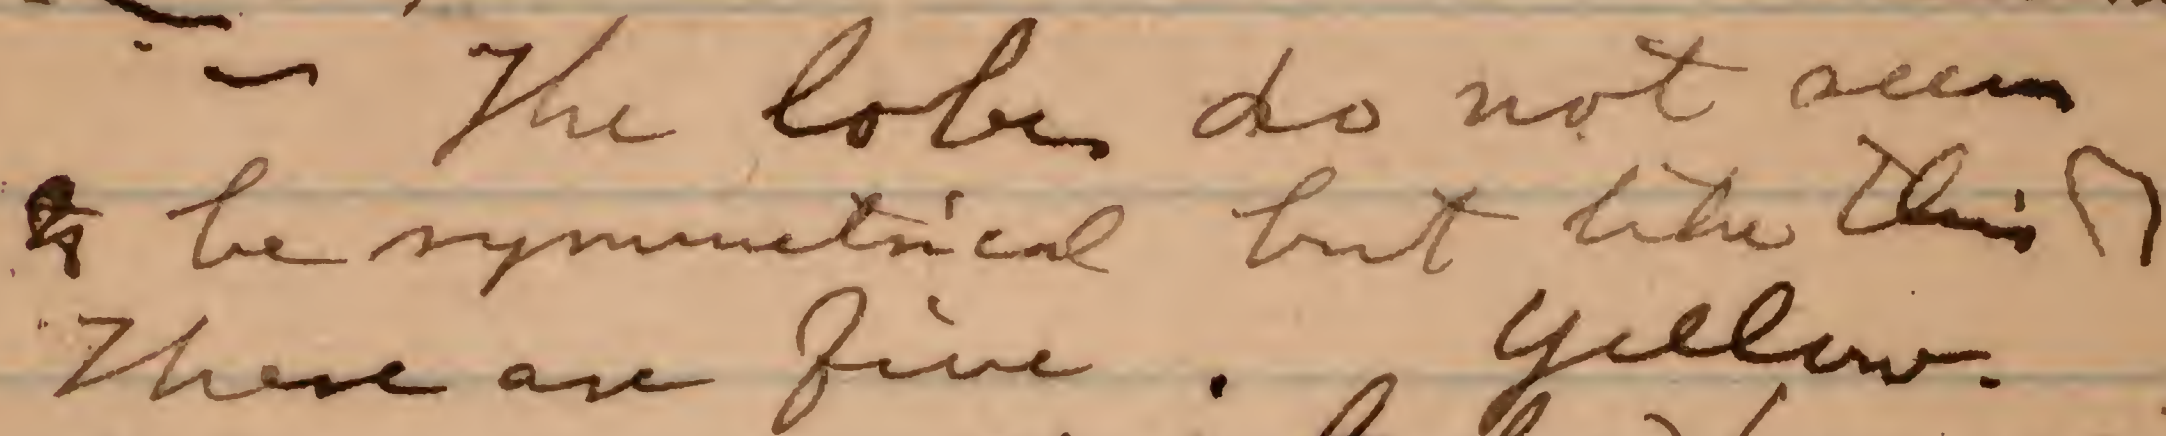 - The lobes do not seem
to be symmetrical but like this
There are five. Yellow.